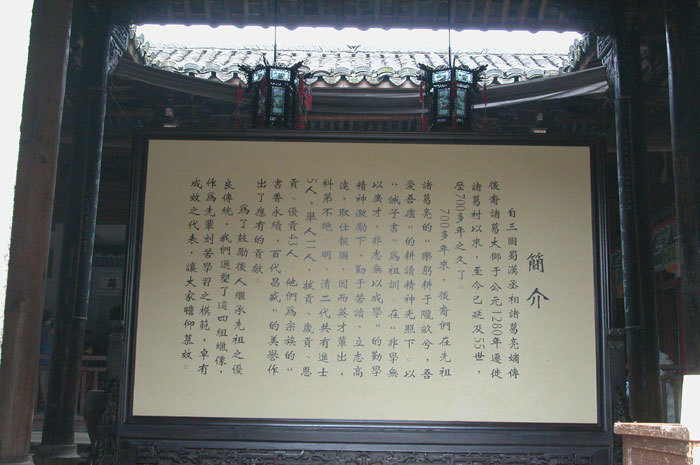 簡介
自三國蜀漢丞相諸葛亮嫡傳
後裔諸葛大獅于公元1280年遷徙
諸葛村以來，至今已延及55世，
歷700多年之久了。
700多年來，後裔們在先祖
諸葛亮的“樂躬耕于隴畝兮，吾
愛吾廬”的耕讀精神光照下。以
“誡子書”爲祖訓。在“非學無
以廣才，非志無以成學”的勤學
精神激勵下，勤于苦讀，立志高
遠，取仕報國，因而英才輩出，
科第不絶。明、清二代共有進士
5人，舉人一人，拔貢、歲貢、恩
貢、優貢43人。他們爲宗族的“
書香永續，百代昌盛”的美譽作
出了應有的貢獻。
爲了鼓勵後人繼承先祖之優
良傳統，我們選塑了這四組蠟像，
作爲先輩刻苦學習之模範，卓有
成效之代表，讓大家瞻仰慕效。